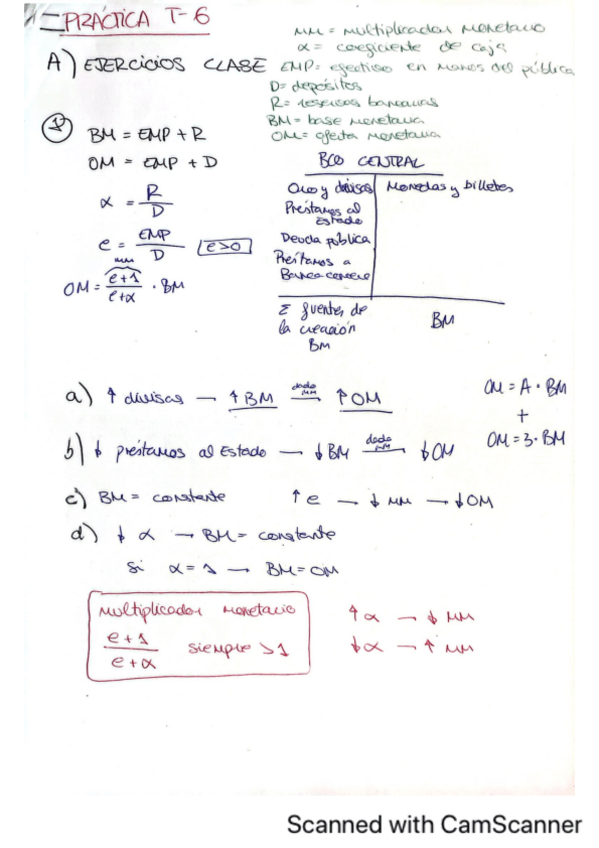 PRÁCTICA T-6
MM = Multiplicador Monetario
α = coeficiente de caja
A) EJERCICIOS CLASE
EMP = efectivo en manos del público
D = depósitos
R = reservas bancarias
BM = base monetaria
OM = oferta monetaria
1)
BM = EMP + R
OM = EMP + D
α = R/D
e = EMP/D e>0
MM
OM = e+1/e+α · BM
BCO CENTRAL
Oro y divisas
Monedas y billetes
Préstamos al
Estado
Deuda pública
Préstamos a
Σ fuentes de
la creación
BM
BM
a) ↑ divisas → ↑ BM dado MM → ↑ OM
OM = A · BM
+
OM = 3 · BM
b) ↓ préstamos al Estado → ↓ BM dado MM → ↓ OM
c) BM = constante ↑ e → ↓ MM → ↓ OM
d) ↓ α → BM = constante
Si α = 1 → BM = OM
Multiplicador Monetario
e+1/e+α siempre >1
↑ α → ↓ MM
↓ α → ↑ MM
Scanned with CamScanner